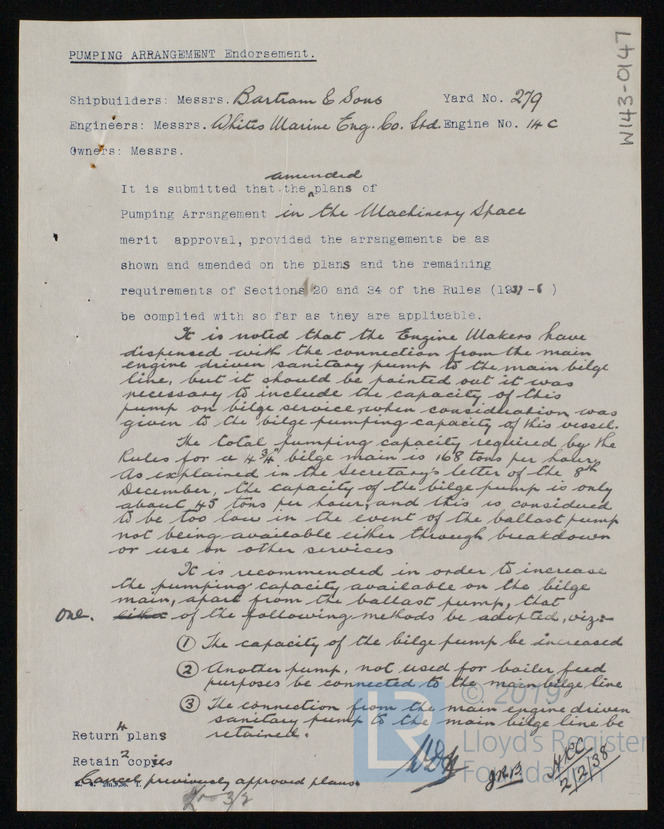 W143-0147
PUMPING ARRANGEMENT Endorsement.
Shipbuilders: Messrs. Bartram & Sons Yard No. 279
Engineers: Messrs. Whites Marine Eng. Co. Ltd. Engine No. 14 C
Owners: Messrs.
amended
It is submitted that the plans of
Pumping Arrangement in the Machinery Space
merit approval, provided the arrangements be as
shown and amended on the plans and the remaining
requirements of Sections 20 and 34 of the Rules (1937-8 )
be complied with so far as they are applicable.
It is noted that the Engine Makers have
dispensed with the connection from the main
engine driven sanitary pump to the main bilge
line, but it should be pointed out it was
necessary to include the capacity of this
pump on bilge service, when consideration was
given to the bilge pumping capacity of this vessel.
The total pumping capacity required by the
Rules for a 4 3/4" bilge main is 168 tons per hour.
As explained in the Secretary's letter of the 8th
December, the capacity of the bilge pump is only
about 45 tons per hour, and this is considered
to be too low in the event of the ballast pump
not being available either through breakdown
or use on other services
It is recommended in order to increase
the pumping capacity available on the bilge
main, apart from the ballast pump, that
one. either of the following methods be adopted, viz:-
① The capacity of the bilge pump be increased
② Another pump, not used for boiler feed
purposes be connected to the main bilge line
③ The connection from the main engine driven
sanitary pump to the main bilge line be
retained.
Return 4 plans
Retain 2 copies
Cancel previously approved plans.
JRB
2/2/38
3/2
© 2019
LR
Lloyd's Register
Foundation